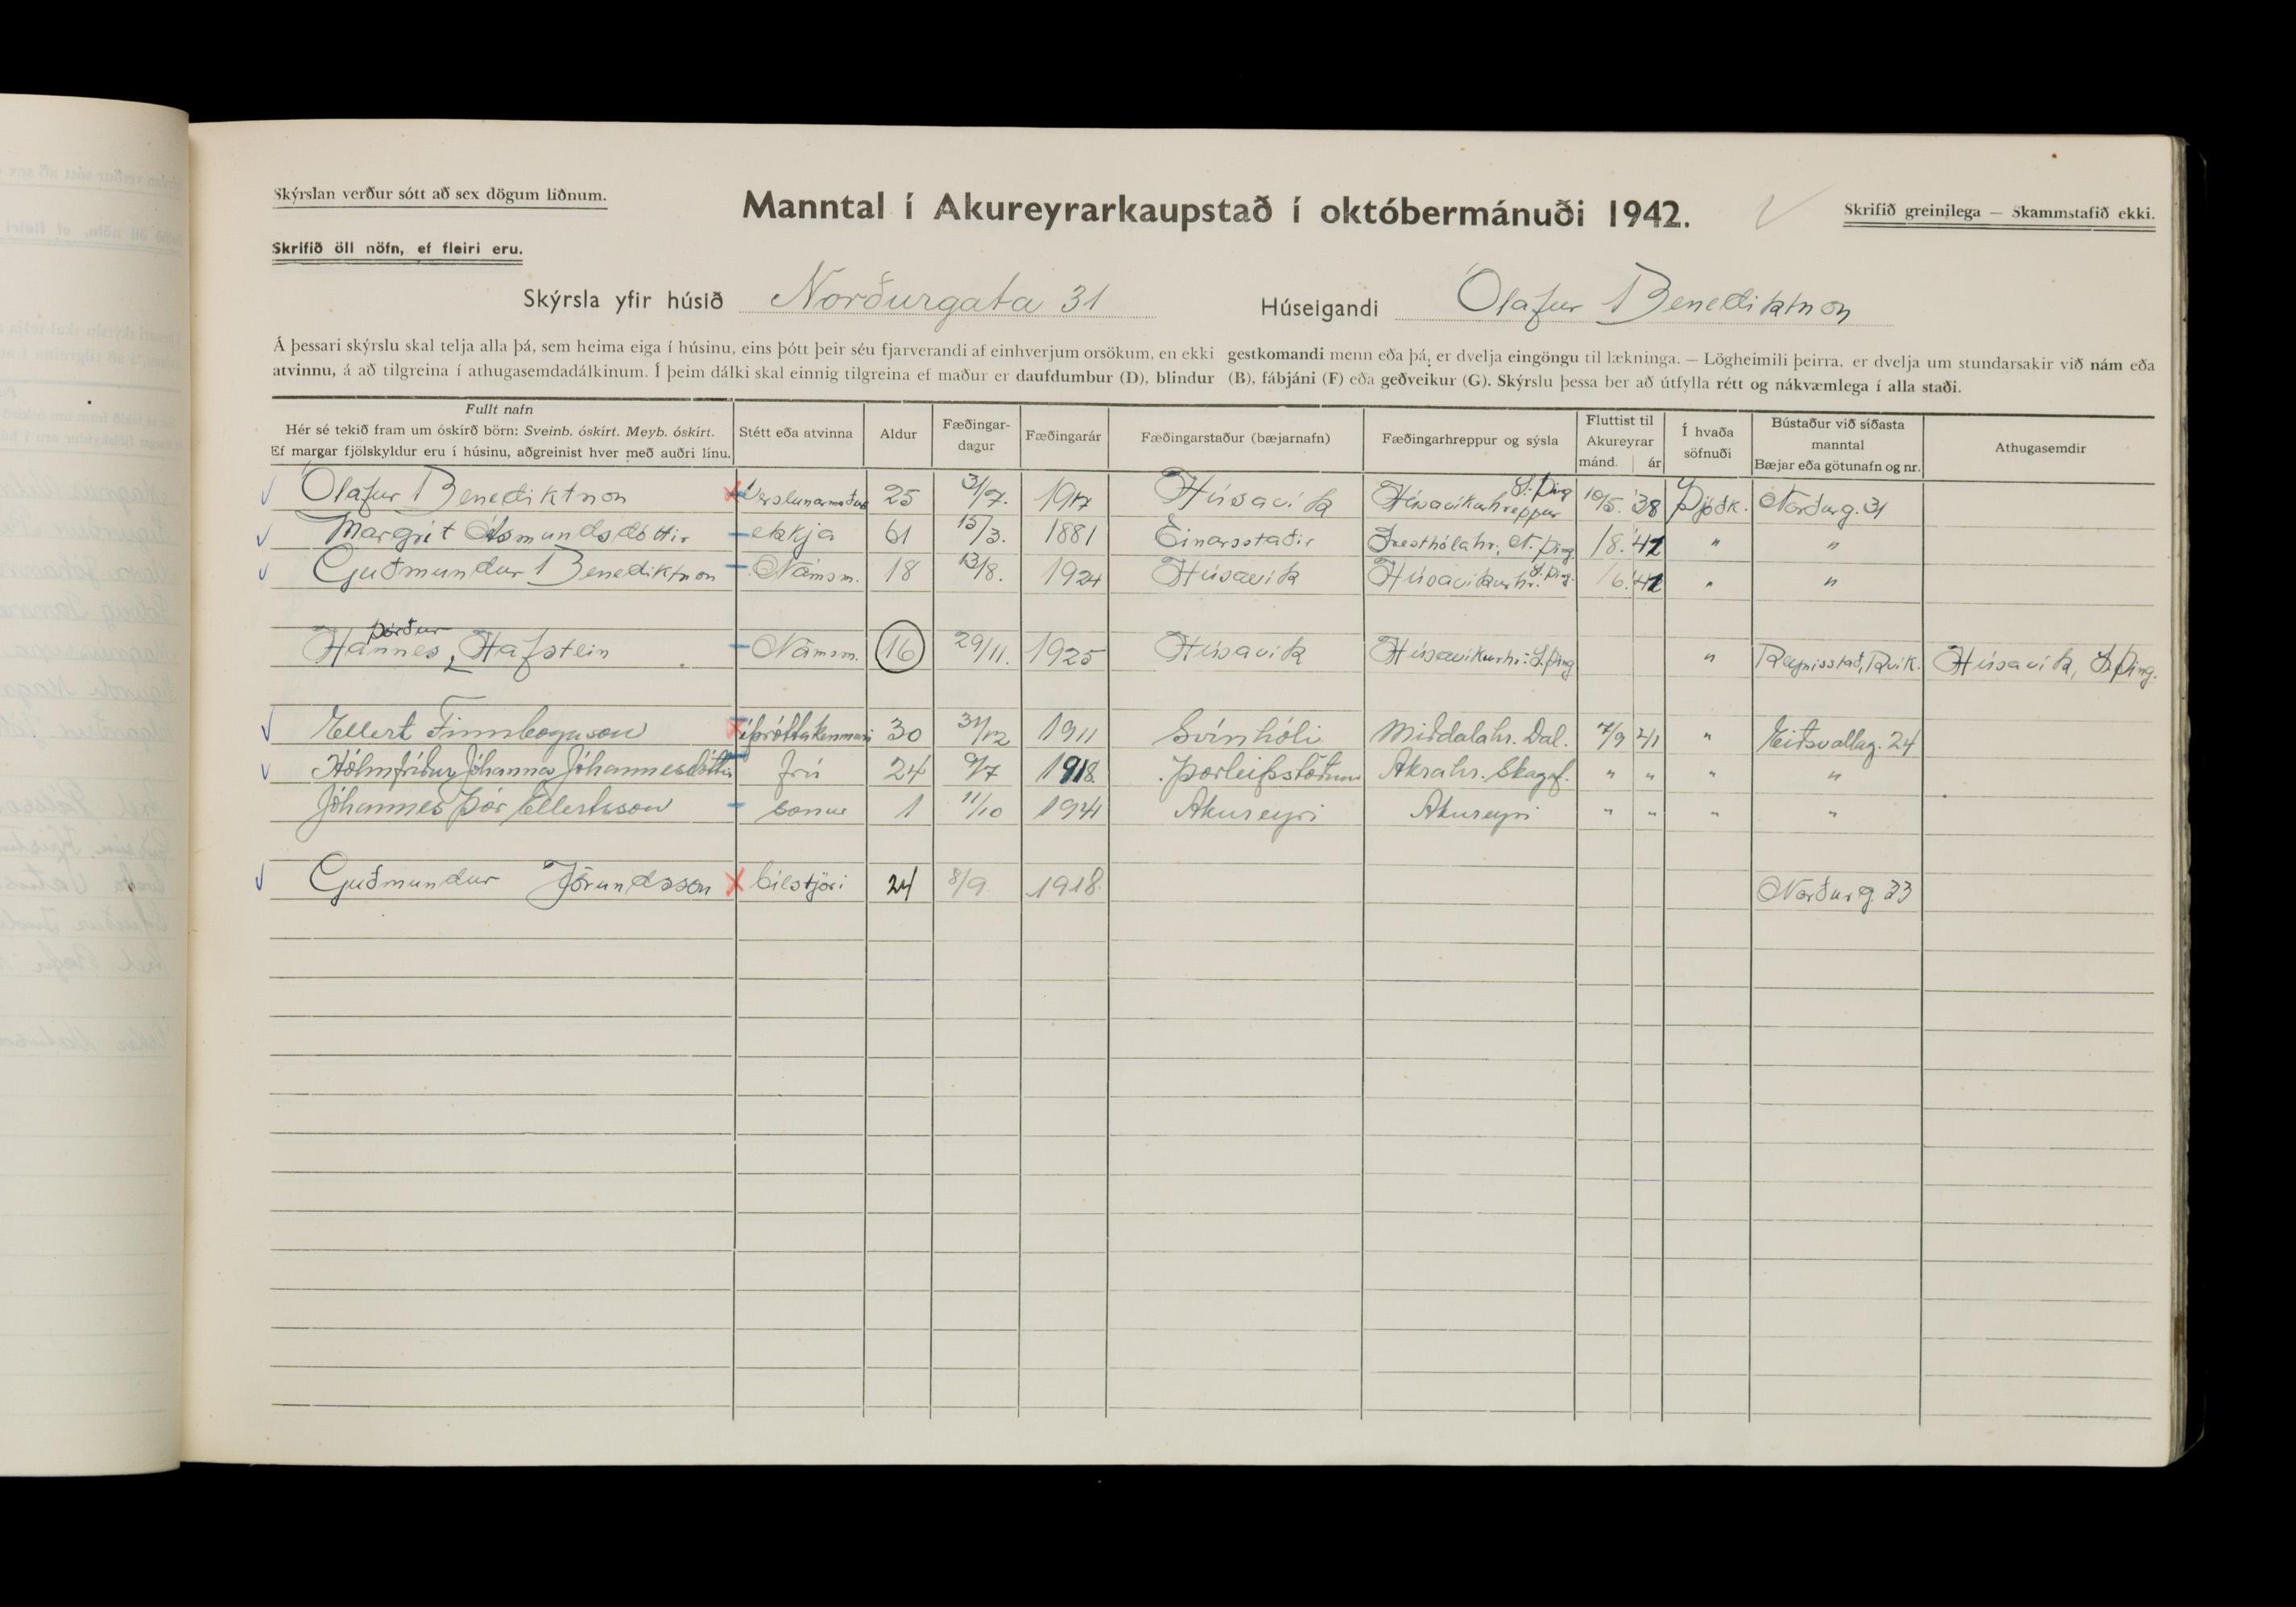 Skýrslan verður sótt að sex dögum liðnum.
Manntal í Akureyrarkaupstað í októbermánuði 1942.
Skrifið greinilega — Skammstafið ekki.
Skrifið öll nöfn, ef fleiri eru.
Skýrsla yfir húsið Norðurgata 31 Húseigandi Ólafur Benediktsson
Á þessari skýrslu skal telja alla þá, sem heima eiga í húsinu, eins þótt þeir séu fjarverandi af einhverjum orsökum, en ekki gestkomandi menn eða þá, er dvelja eingöngu til lækninga. — Lögheimili þeirra, er dvelja um stundarsakir við nám eða
atvinnu, á að tilgreina í athugasemdadálkinum. Í þeim dálki skal einnig tilgreina ef maður er daufdumbur (D), blindur (B), fábjáni (F) eða geðveikur (G). Skýrslu þessa ber að útfylla rétt og nákvæmlega í alla staði.
Fullt nafn
Hér sé tekið fram um óskírð börn: Sveinb. óskírt. Meyb. óskírt.
Ef margar fjölskyldur eru í húsinu, aðgreinist hver með auðri línu.
Stétt eða atvinna
Aldur
Fæðingar-
dagur
Fæðingarár
Fæðingarstaður (bæjarnafn)
Fæðingarhreppur og sýsla
Fluttist til
Akureyrar
mánd. ár
Í hvaða
söfnuði
Bústaður við síðasta
manntal
Bæjar eða götunafn og nr.
Athugasemdir
Ólafur Benediktsson Verslunarmaður 25 31/7. 1917 Húsavík Húsavíkurhreppur S.Þing 10/5. '38 Þjóðk. Norðurg. 31
Margrét Ásmundsdóttir ekkja 61 15/3. 1881 Einarsstaðir Presthólahr. N. Þing. 1/8. '41 " "
Guðmundur Benediktsson Námsm. 18 13/8. 1924 Húsavík Húsavíkurhr. S.Þing. 1/6. '42 " "
Hannes Þórður Hafstein Námsm. 16 29/11. 1925 Húsavík Húsavíkurhr. S.Þing " Reynisstað, Rvík. Húsavík, S.Þing.
Ellert Finnbogason íþróttakennari 30 31/12 1911 Svínhóli Miðdalahr. Dal. 7/9 41 " Eiðsvallag. 24
Hólmfríður Jóhanna Jóhannesdóttir frú 24 9/7 1918. Þorleifsstöðum Akrahr. Skagf. " " " "
Jóhannes Þór Ellertsson sonur 1 11/10 1941 Akureyri Akureyri " " " "
Guðmundur Jörundsson bílstjóri 24 8/9 1918. Norðurg. 33